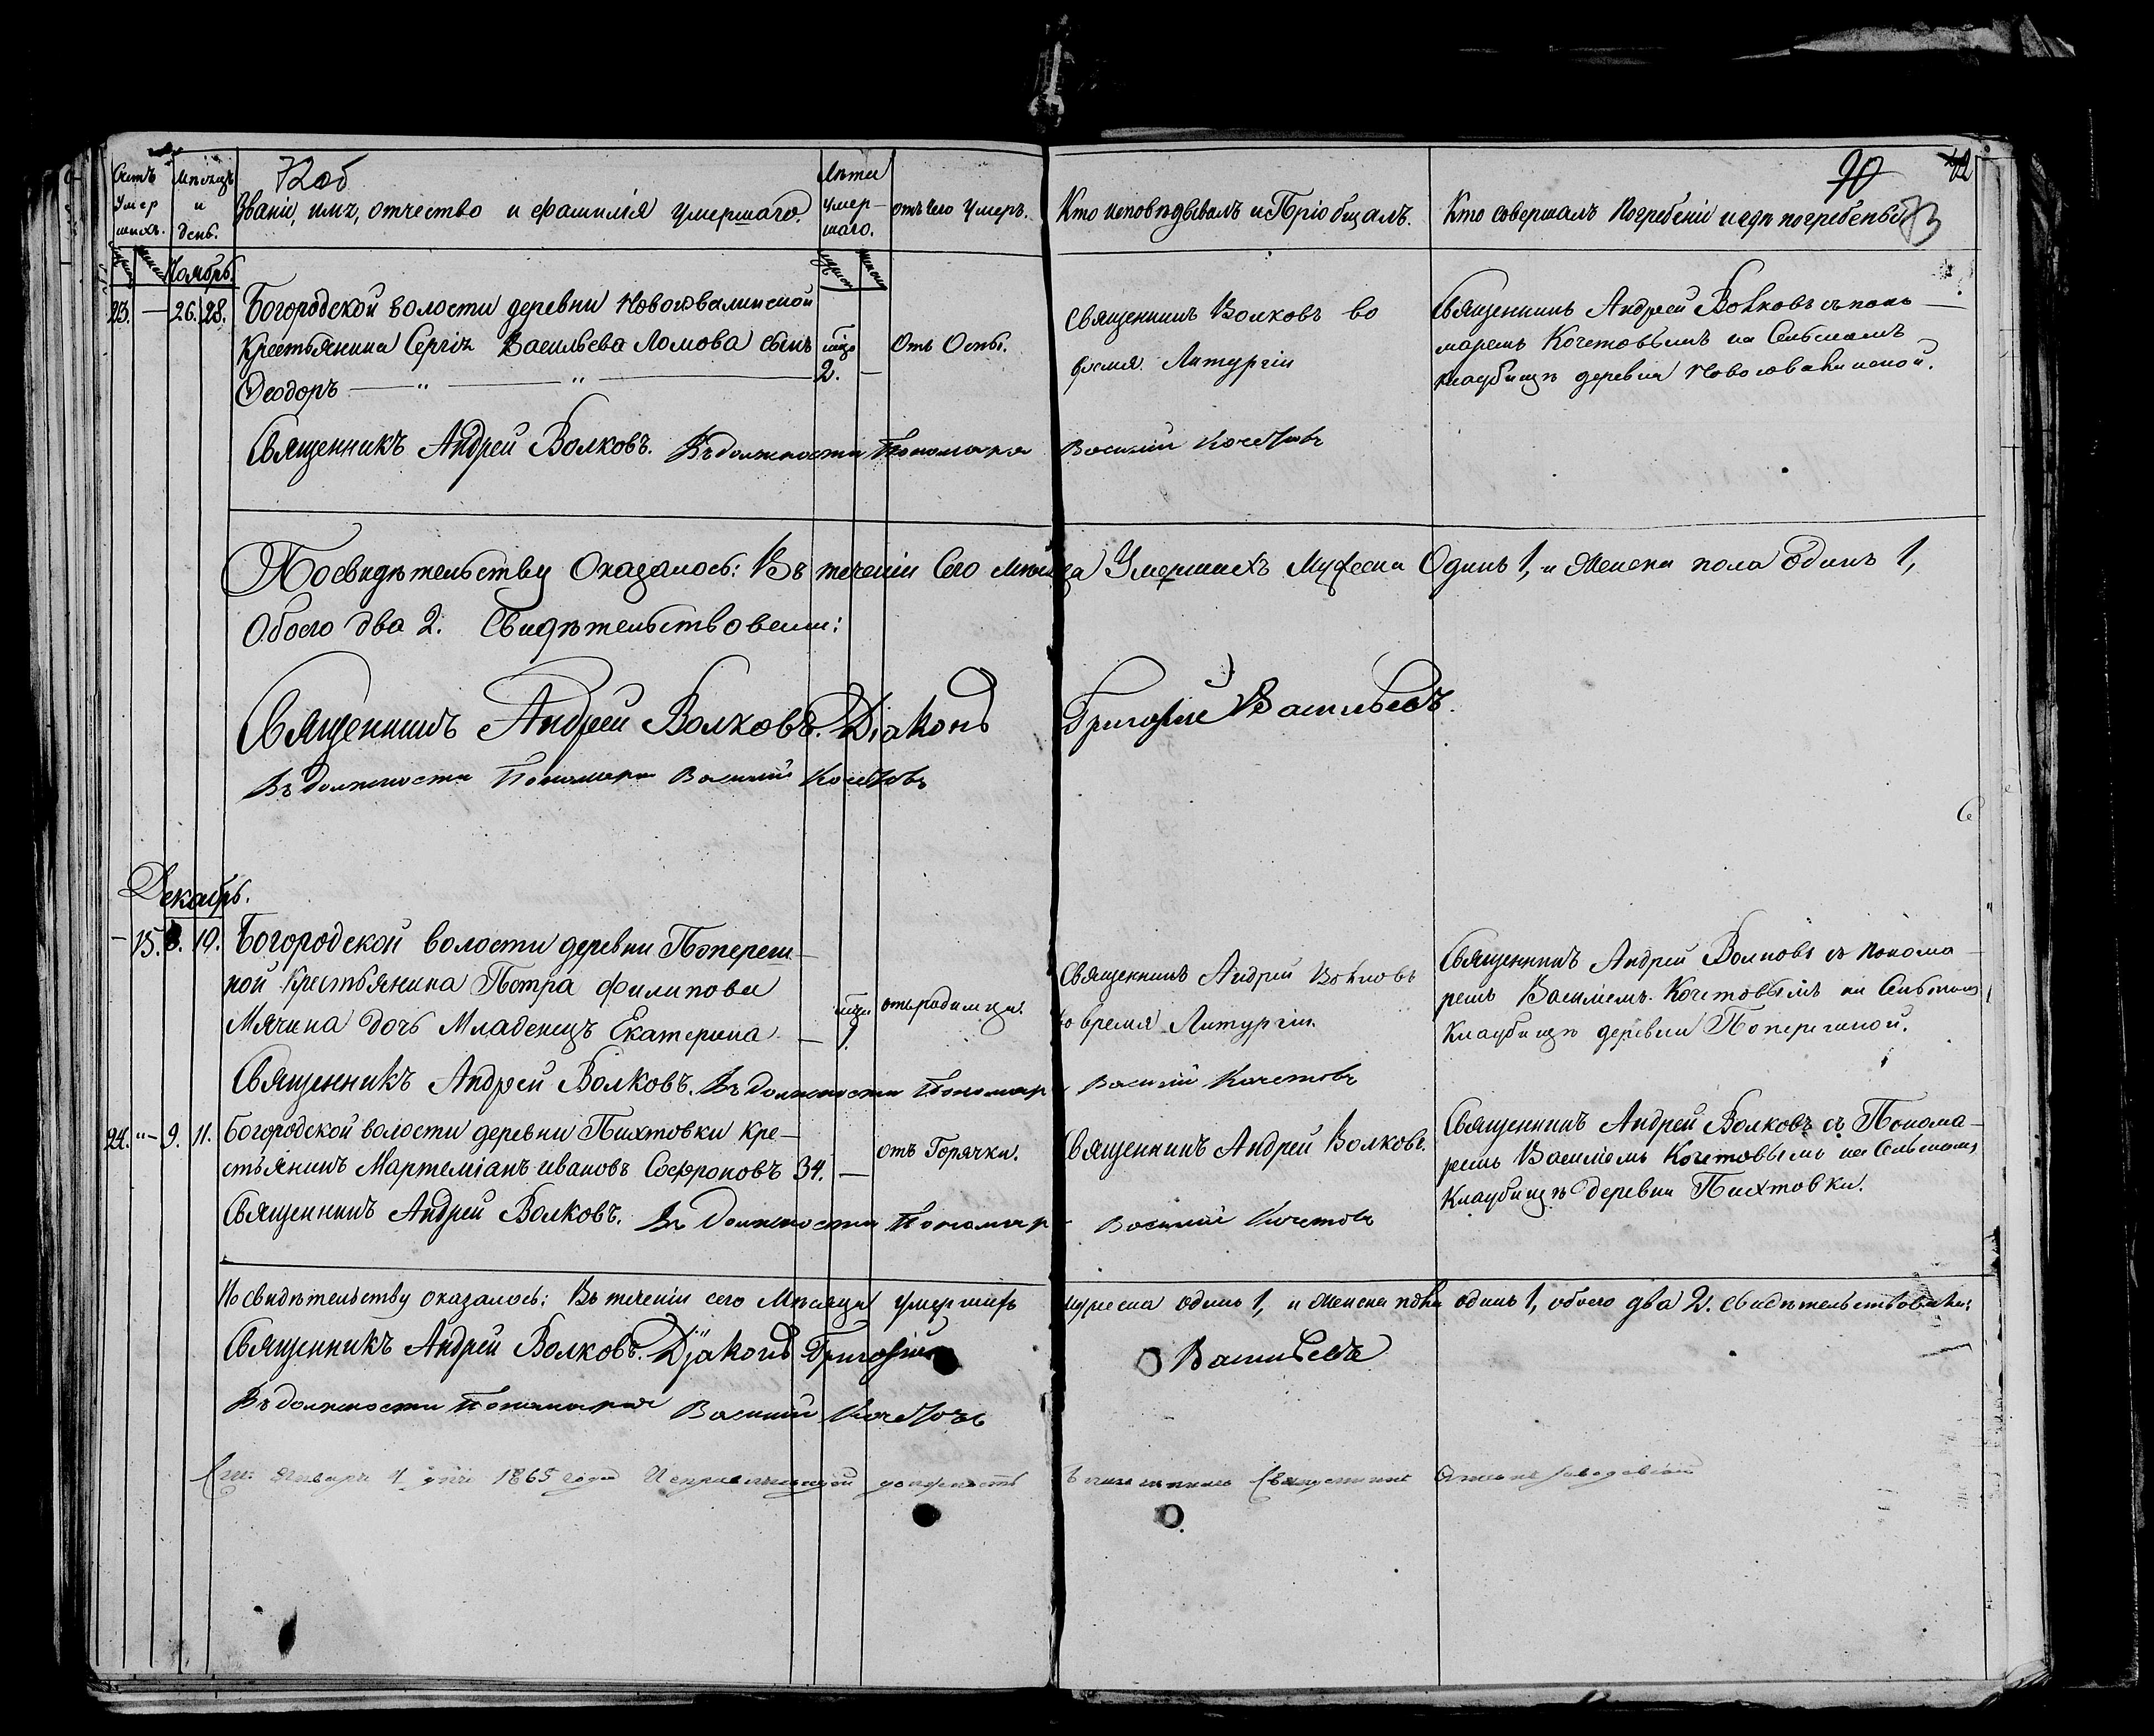 72об
90
42
73
Счетъ умер шихъ.
Мѣсяцъ и день.
Званіе, имя, отчество и фамилія умершаго.
Лѣта умер- шаго.
отъ чего умеръ.
Кто исповѣдывалъ и Пріобщалъ.
Кто совершалъ Погребеніе и гдѣ погребены
Ноябрь.
23. — 26. 28.
Богородской волости деревни
Крестьянина Сергія Васильева Ломова сынъ
Ѳеодоръ — " — " —
2. —
отъ Оспы.
Священникъ Волковъ во
время Литургіи
Священникъ Андрей Волковъ съ поно-
маремъ Кочетовымъ на Сельскомъ
кладбищѣ деревни
Священникъ Андрей Волковъ. Въ должности Пономаря Василий Кочетовъ
По свидѣтельству Оказалось: Въ теченіи Сего мѣсяца Умершихъ Мужеска Одинъ 1, и Женска пола Одинъ 1,
Обоего два 2. Свидѣтельствовали:
Священникъ Андрей Волковъ. Діаконъ Григорій Васильевъ.
Въ должности Пономаря Василий Кочетовъ
Декабрь.
— 15. 8. 10.
Богородской волости деревни Попереш-
ной Крестьянина Петра Филипова
Мячина дочь Младенецъ Екатерина —
отъ родимца.
Священникъ Андрей Волковъ
во время Литургіи.
Священникъ Андрей Волковъ съ понома-
ремъ Василіемъ Кочетовымъ на Сельскомъ
Кладбищѣ деревни Поперешной.
Священникъ Андрей Волковъ. Въ должности Пономаря Василий Кочетовъ
24. "– 9. 11.
Богородской волости деревни Пихтовки Кре-
стьянинъ Мартеміанъ ивановъ Софроновъ
34. —
отъ Горячки.
Священникъ Андрей Волковъ.
Священникъ Андрей Волковъ съ Понома-
ремъ Василіемъ Кочетовымъ на Сельскомъ
Кладбищѣ деревни Пихтовки.
Священникъ Андрей Волковъ. Въ должности Пономаря Василий Кочетовъ
По свидѣтельству оказалось: Въ теченіи сего Мѣсяца умершихъ мужеска одинъ 1, и женска пола одинъ 1, обоего два 2. свидѣтельствовали:
Священникъ Андрей Волковъ. Діаконъ Григорій Васильевъ
Въ должности Пономаря Василий Кочетовъ
Января 1865 года Исправляющій должность Священникъ